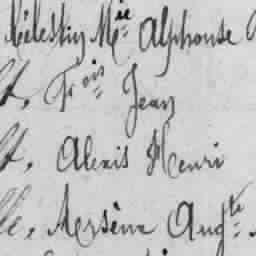 Célestin Mie Alphonse
t, Frois Jean
t, Alexis Henri
lle, Mersène Augte